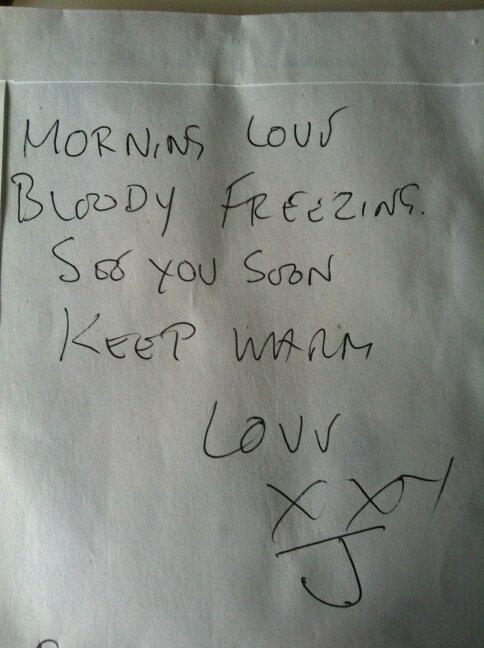 MORNING LOVE
BLOODY FREEZING.
SEE YOU SOON
KEEP WARM
LOVE
X X
J